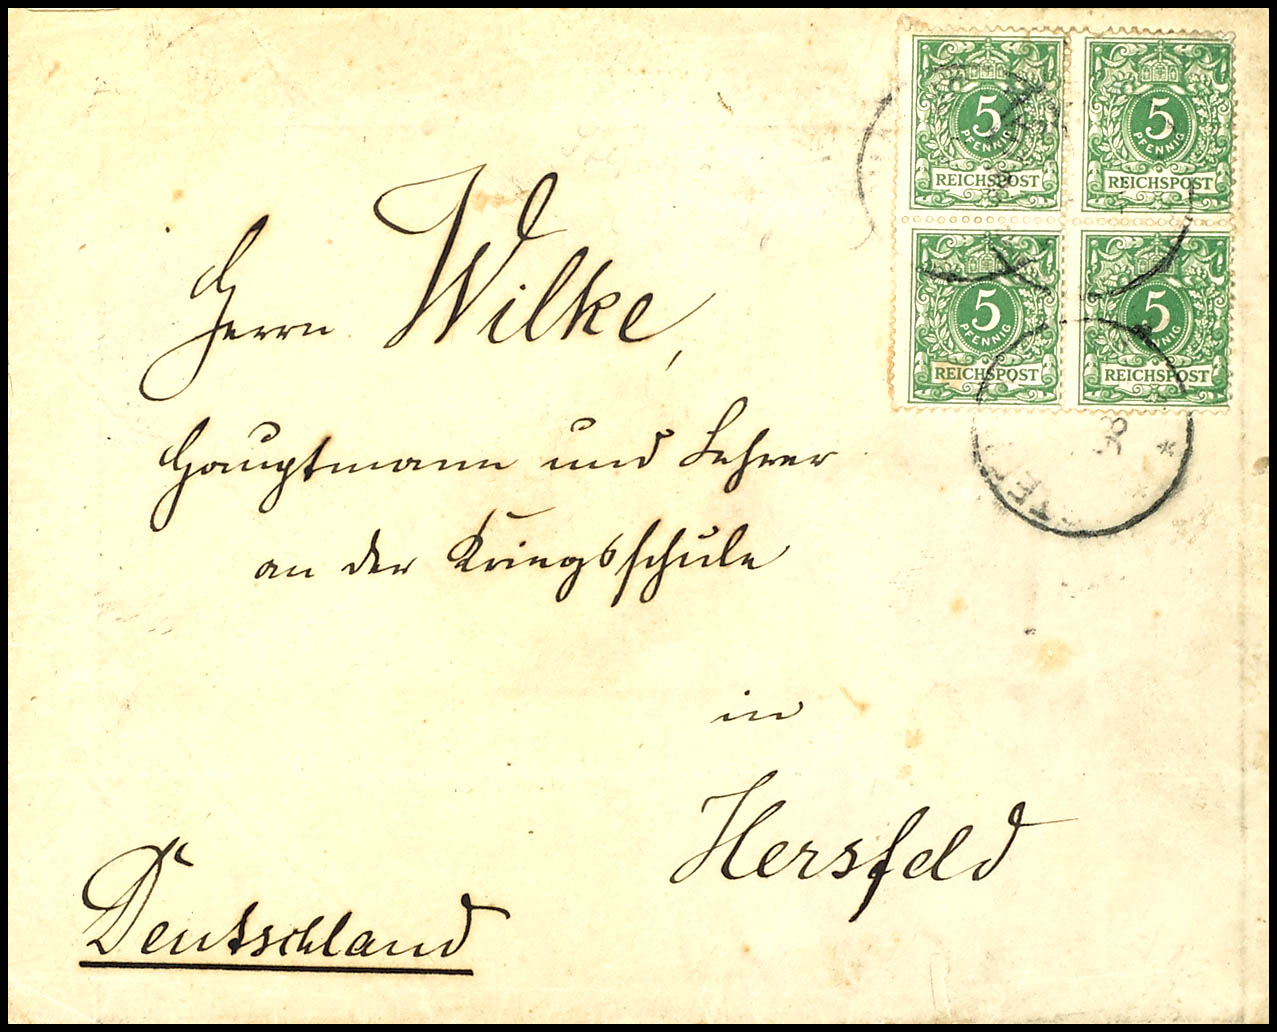 5 PFENNIG REICHSPOST
5 PFENNIG REICHSPOST
5 PFENNIG REICHSPOST
5 PFENNIG REICHSPOST
Herrn Wilke,
Hauptmann und Lehrer
an der Kriegsschule
in
Hersfeld
Deutschland